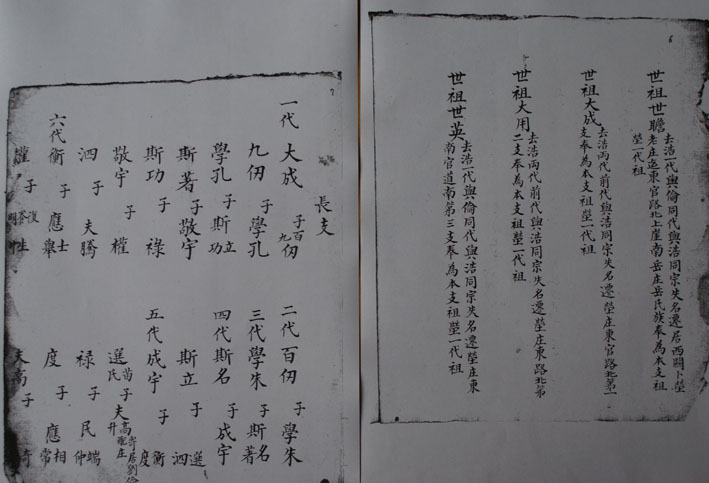 6
世祖世瞻 去浩一代與倫同代與浩同宗失名遷居西關卜塋
老庄迤東官路北上崖南岳庄岳氏族奉為本支祖
塋一代祖
世祖大成 去浩兩代前代與浩同宗失名遷塋庄東官路北第一
支奉為本支祖塋一代祖
世祖大用 去浩兩代前代與浩同宗失名遷塋庄東路北第
二支奉為本支祖塋一代祖
世祖世英 去浩一代與倫同代與浩同宗失名遷塋庄東
南官道南第三支奉為本支祖塋一代祖
7
長支
一代 大成 子 百仞 九仞 二代 百仞 子 學朱
九仞 子 學孔 三代 學朱 子 斯名 斯著
學孔 子 斯立 斯功 四代 斯名 子 成宇
斯著 子 敬宇 斯立 子 選 泗
斯功 子 祿 五代 成宇 子 衡 度
敬宇 子 權 選 苗氏 子 夫高 夫升 寄居劉
泗 子 夫騰 祿 子 民端 民仲
六代 衡 子 應士 應舉 度 子 應相 應常
權 子 夫高 子